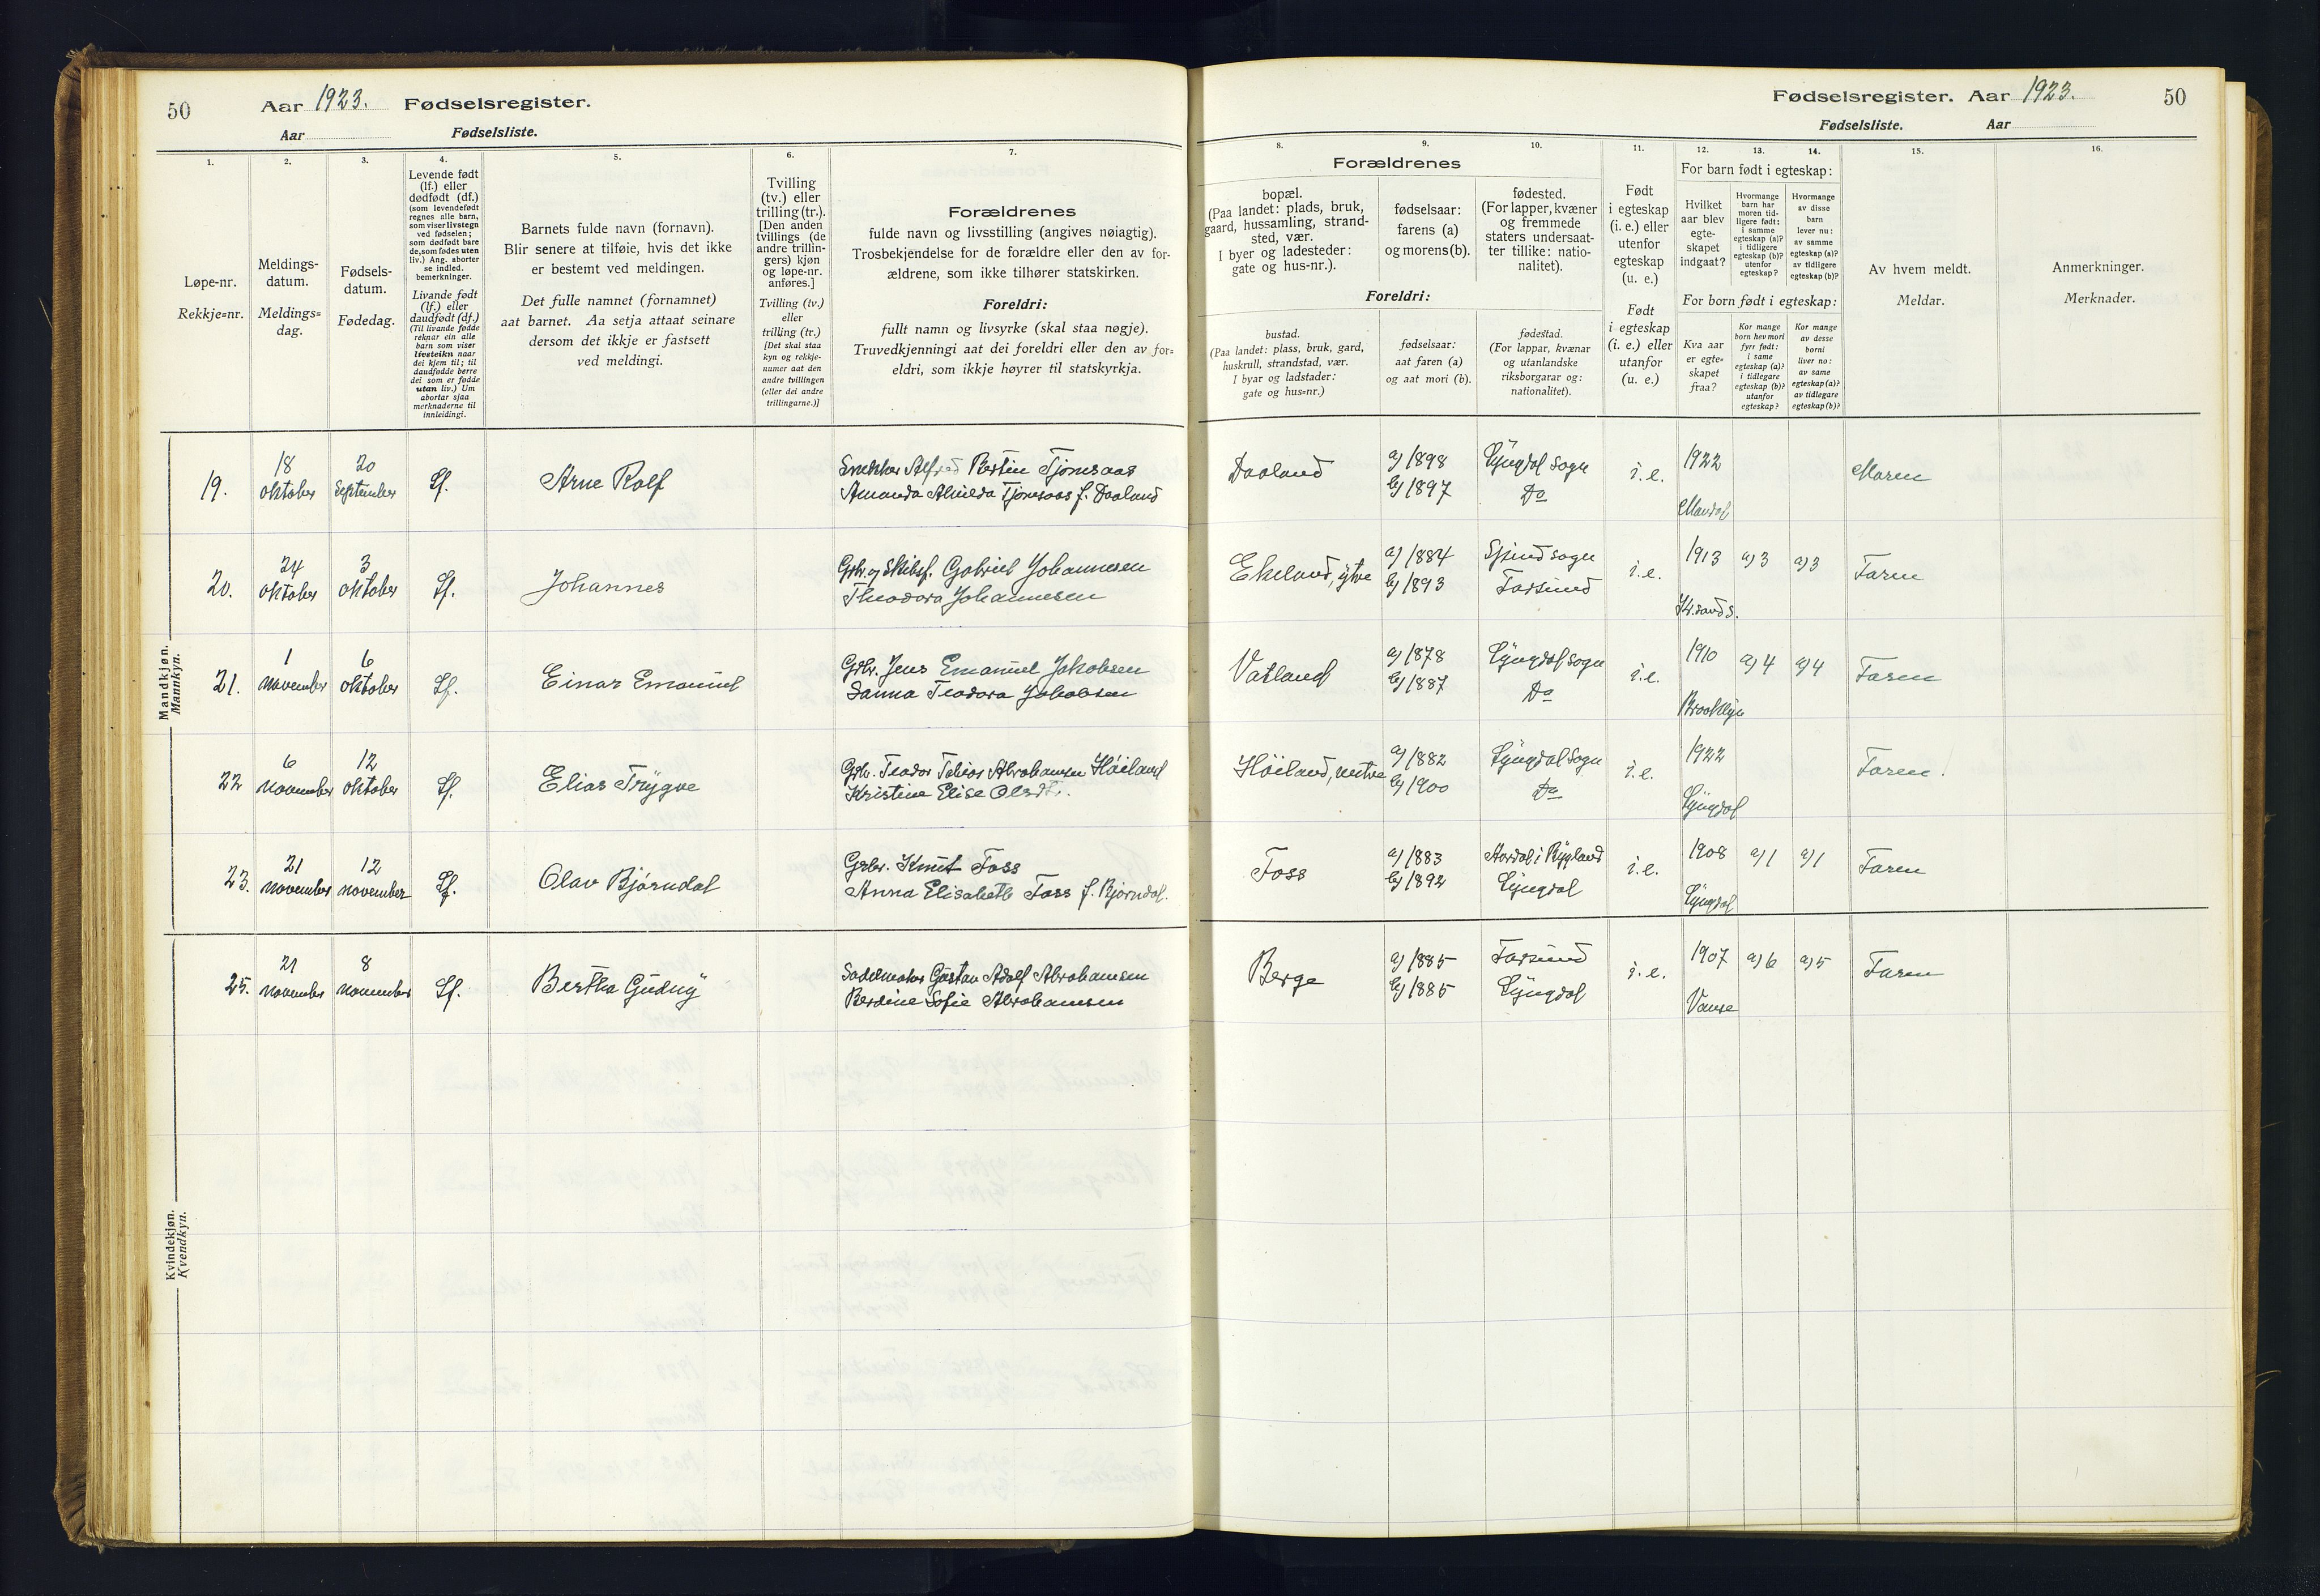 50
Aar 1923. Fødselsregister.
Aar Fødselsliste.
1.
2.
3.
4.
5.
6.
7.
Løpe-nr.
Rekkje=nr.
Meldings-
datum.
Meldings=
dag.
Fødsels-
datum.
Fødedag.
Levende født
(lf.) eller
dødfødt (df.)
(som levendefødt
regnes alle barn,
som viser livstegn
ved fødselen;
som dødfødt bare
de, som fødes uten
liv.) Ang. aborter
se indled.
bemerkninger.
Livande født
(lf.) eller
daudfødt (df.)
(Til livande fødde
reknar ein alle
barn som viser
livsteikn naar
dei kjem til; til
daudfødde berre
dei som er fødde
utan liv.) Um
abortar sjaa
merknaderne til
innleidingi.
Barnets fulde navn (fornavn).
Blir senere at tilføie, hvis det ikke
er bestemt ved meldingen.
Det fulle namnet (fornamnet)
aat barnet. Aa setja attaat seinare
dersom det ikkje er fastsett
ved meldingi.
Tvilling
(tv.) eller
trilling (tr.).
[Den anden
tvillings (de
andre trillin-
gers) kjøn
og løpe-nr.
anføres.]
Tvilling (tv.)
eller
trilling (tr.)
[Det skal staa
kyn og rekkje-
numer aat den
andre tvillingen
(eller dei andre
trillingarne.)]
Forældrenes
fulde navn og livsstilling (angives nøiagtig).
Trosbekjendelse for de forældre eller den av for-
ældrene, som ikke tilhører statskirken.
Foreldri:
fullt namn og livsyrke (skal staa nøgje).
Truvedkjenningi aat dei foreldri eller den av for=
eldri, som ikkje høyrer til statskyrkja.
Mandkjøn.
Mannkyn.
19. 18 oktober 20 september Lf. Arne Rolf
Snekker Alfred Bertin Tjomsaas
Amanda Almida Tjomsaas f. Daaland
20. 24 oktober 3 oktober Lf. Johannes
Grbr. og Skibsf. Gabriel Johannesen
Theodora Johannesen
21. 1 november 6 oktober Lf. Einar Emanuel
Grbr. Jens Emanuel Jakobsen
Sanna Teodora Jakobsen
22 6 november 12 oktober Lf. Elias Trygve
Grbr. Teodor Tobias Abrahamsen Høiland
Kristine Elise
23. 21 november 12 november Lf. Olav Bjørndal
Grbr. Knut Foss
Anna Elisabeth Foss f. Bjørndal.
Kvindekjøn.
Kvendkyn.
25. 21 november 8 november Lf. Bertha Gudny
Sadelmaker Gustav Adolf Abrahamsen
Berdine Sofie Abrahamsen
Fødselsregister. Aar 1923.
50
Fødselsliste. Aar
8.
9.
10.
11.
12.
13.
14.
15.
16.
Forældrenes
bopæl.
(Paa landet: plads, bruk,
gaard, hussamling, strand-
sted, vær.
I byer og ladesteder:
gate og hus-nr.).
fødselsaar:
farens (a)
og morens (b).
fødested.
(For lapper, kvæner
og fremmede
staters undersaat-
ter tillike: natio-
nalitet).
Foreldri:
bustad.
(Paa landet: plass, bruk, gard,
huskrull, strandstad, vær.
I byar og ladstader:
gate og hus=nr.)
fødselsaar:
aat faren (a)
og aat mori (b).
fødestad.
(For lappar, kvænar
og utanlandske
riksborgarar og:
nationalitet).
Født
i egteskap
(i. e.) eller
utenfor
egteskap
(u. e.)
Født
i egteskap
(i. e.) eller
utanfor
(u. e.)
For barn født i egteskap:
Hvilket
aar blev
egte-
skapet
indgaat?
Hvormange
barn har
moren tid-
ligere født:
i samme
egteskap (a)?
i tidligere
egteskap (b)?
utenfor
egteskap?
Hvormange
av disse
barn
lever nu:
av samme
egteskap (a)?
av tidligere
egteskap (b)?
For born født i egteskap:
Kva aar
er egte=
skapet
fraa?
Kor mange
born hev mori
fyrr født:
i same
egteskap (a)?
i tidlegare
egteskap (b)?
utanfor
egteskap?
Kor mange
av desse
borni
liver no:
av same
egteskap (a)?
av tidlegare
egteskap (b)?
Av hvem meldt.
Meldar.
Anmerkninger.
Merknader.
Daaland a) 1898 Lyngdal sogn i.e. 1922 Moren
b) 1897 Do Mandal
Ekeland, ytre a) 1884 Spind sogn i.e. 1913 a) 3 a) 3 Faren
b) 1893 Farsund Kr.sand S.
Vatland a) 1878 Lyngdal sogn i.e. 1910 a) 4 a) 4 Faren
b) 1887 Do Brooklyn
Høiland, vestre a) 1882 Lyngdal sogn i.e. 1922 Faren.
b) 1900 Do Lyngdal
Foss a) 1883 Aardal i Ryfland i.e. 1908 a) 1 a) 1 Faren
b) 1892 Lyngdal Lyngdal
Berge a) 1885 Farsund i.e. 1907 a) 6 a) 5 Faren
b) 1885 Lyngdal Vanse